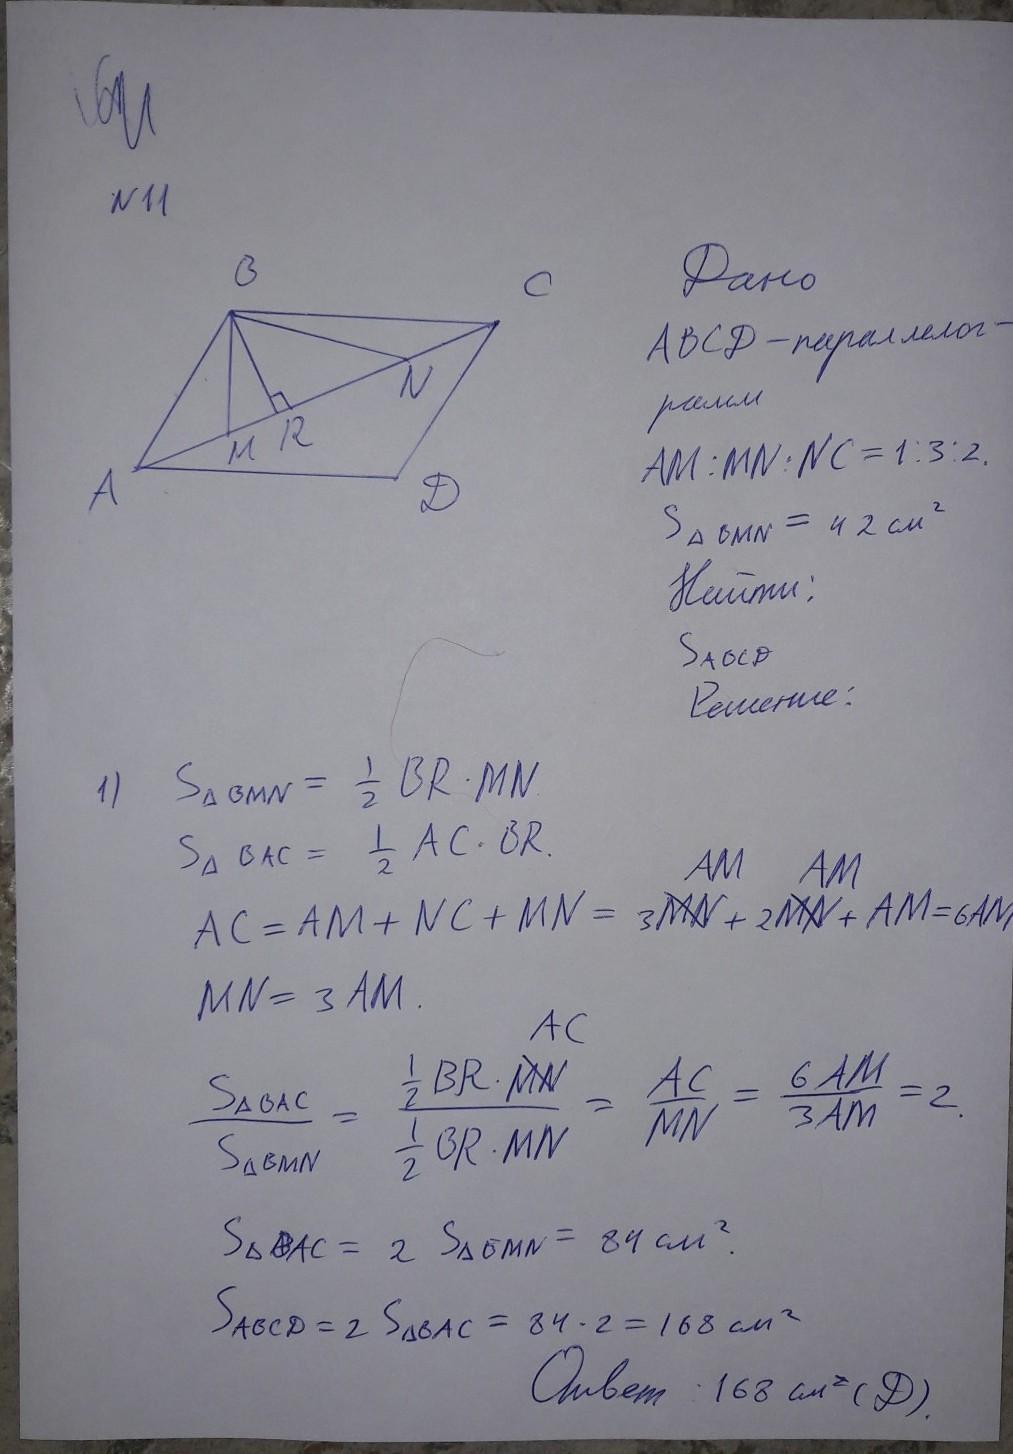 N11
B
C
N
M R
A
D
Дано
ABCD - параллелог-
рамм
AM : MN : NC = 1 : 3 : 2.
S△BMN = 42 см²
Найти:
SABCD
Решение:
1) S△BMN = 1/2 BR · MN
S△BAC = 1/2 AC · BR.
AM AM
AC = AM + NC + MN = 3MN + 2MN + AM = 6AM
MN = 3 AM.
AC
S△BAC / S△BMN = 1/2 BR · MN / 1/2 BR · MN = AC / MN = 6AM / 3AM = 2.
S△BAC = 2 S△BMN = 84 см².
SABCD = 2 S△BAC = 84 · 2 = 168 см²
Ответ : 168 см² (D).